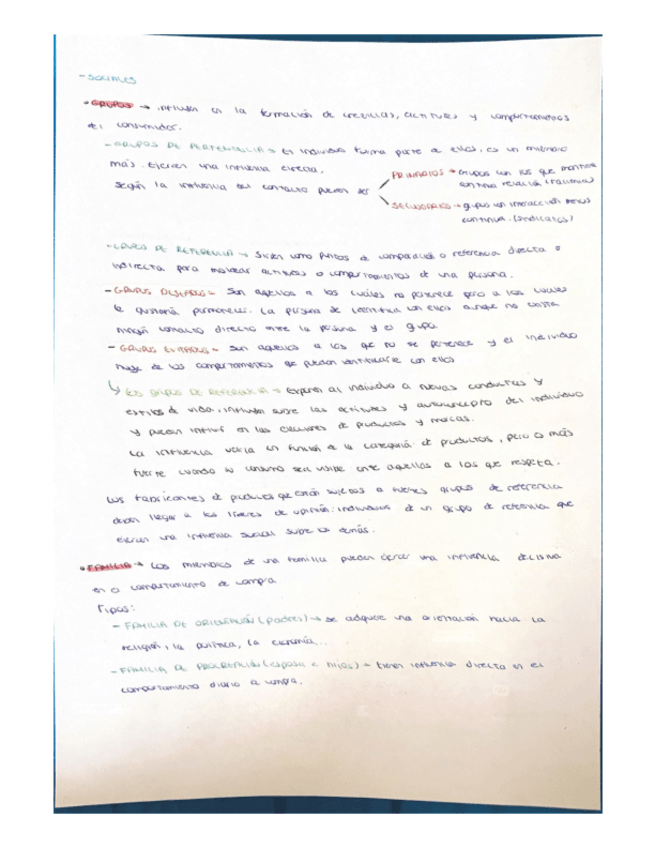 - SOCIALES
• GRUPOS → influyen en la formación de creencias, actitudes y comportamientos
del consumidor.
- GRUPOS DE PERTENENCIA → El individuo forma parte de ellos, es un miembro
más. Ejercen una influencia directa.
Según la influencia del contacto pueden ser
PRIMARIOS → Grupos con los que mantiene
continua relación (familias)
SECUNDARIOS → grupos con interacción menos
continua. (sindicatos)
- GRUPOS DE REFERENCIA → Sirven como puntos de comparación o referencia directa o
indirecta para moldear actitudes o comportamientos de una persona.
- GRUPOS DESEADOS → Son aquellos a los cuáles no pertenece pero a los cuales
le gustaría pertenecer. La persona se identifica con ellos aunque no exista
ningún contacto directo entre la persona y el grupo
- GRUPOS EVITADOS → Son aquellos a los que no se pertenece y el individuo
huye de los comportamientos que puedan identificarle con ellos
Los grupos de REFERENCIA → Exponen al individuo a nuevas conductas y
estilos de vida, influyen sobre las actitudes y autoconcepto del individuo
y pueden influir en las elecciones de productos y marcas.
La influencia varía en función de la categoría de productos, pero es más
fuerte cuando su consumo sea visible ante aquellos a los que respeta.
Los fabricantes de productos que están sujetos a fuertes grupos de referencia
deben llegar a los líderes de opinión: individuos de un grupo de referencia que
ejercen una influencia social sobre los demás.
• FAMILIA → Los miembros de una familia pueden ejercer una influencia decisiva
en el comportamiento de compra
Tipos:
- FAMILIA DE ORIENTACIÓN (padres) → se adquiere una orientación hacia la
religión, la política, la economía...
- FAMILIA DE PROCREACIÓN (esposa e hijos) → tienen influencia directa en el
comportamiento diario de compra.